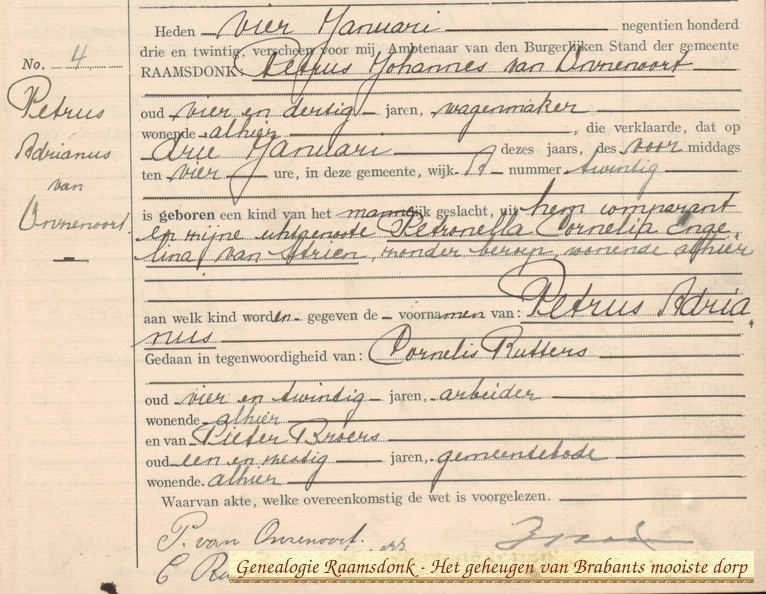 No. 4
Petrus
Adrianus
van
Onzenoort.
Heden vier Januari negentien honderd
drie en twintig, verscheen voor mij, Ambtenaar van den Burgerlijken Stand der gemeente
RAAMSDONK: Petrus Johannes van Onzenoort
oud vier en dertig jaren, wagenmaker
wonende alhier, die verklaarde, dat op
drie Januari dezes jaars, des voormiddags
ten vier ure, in deze gemeente, wijk A nummer twintig
is geboren een kind van het mannelijk geslacht, uit hem comparant
en zijne echtgenoote Petronella Cornelia Enge-
lina van Strien, zonder beroep, wonende alhier
aan welk kind worden gegeven de voornamen van: Petrus Adria
nus
Gedaan in tegenwoordigheid van: Cornelis Rutters
oud vier en twintig jaren, arbeider
wonende alhier
en van Pieter Broers
oud een en zestig jaren, gemeentebode
wonende alhier
Waarvan akte, welke overeenkomstig de wet is voorgelezen.
P. van Onzenoort.
C
Genealogie Raamsdonk - Het geheugen van Brabants mooiste dorp